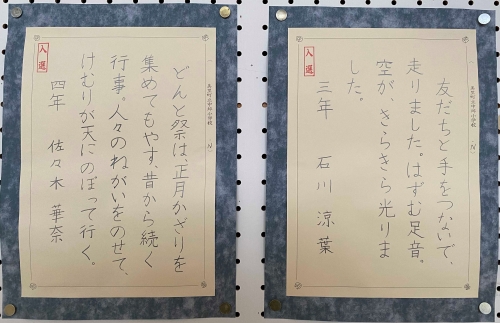 入選
友だちと手をつないで、
走りました。はずむ足音。
空が、きらきら光りま
した。
三年 石川 涼葉
入選
どんと祭は、正月かざりを
集めてもやす、昔から続く
行事。人々のねがいをのせて、
けむりが天にのぼって行く。
四年 佐々木 華奈